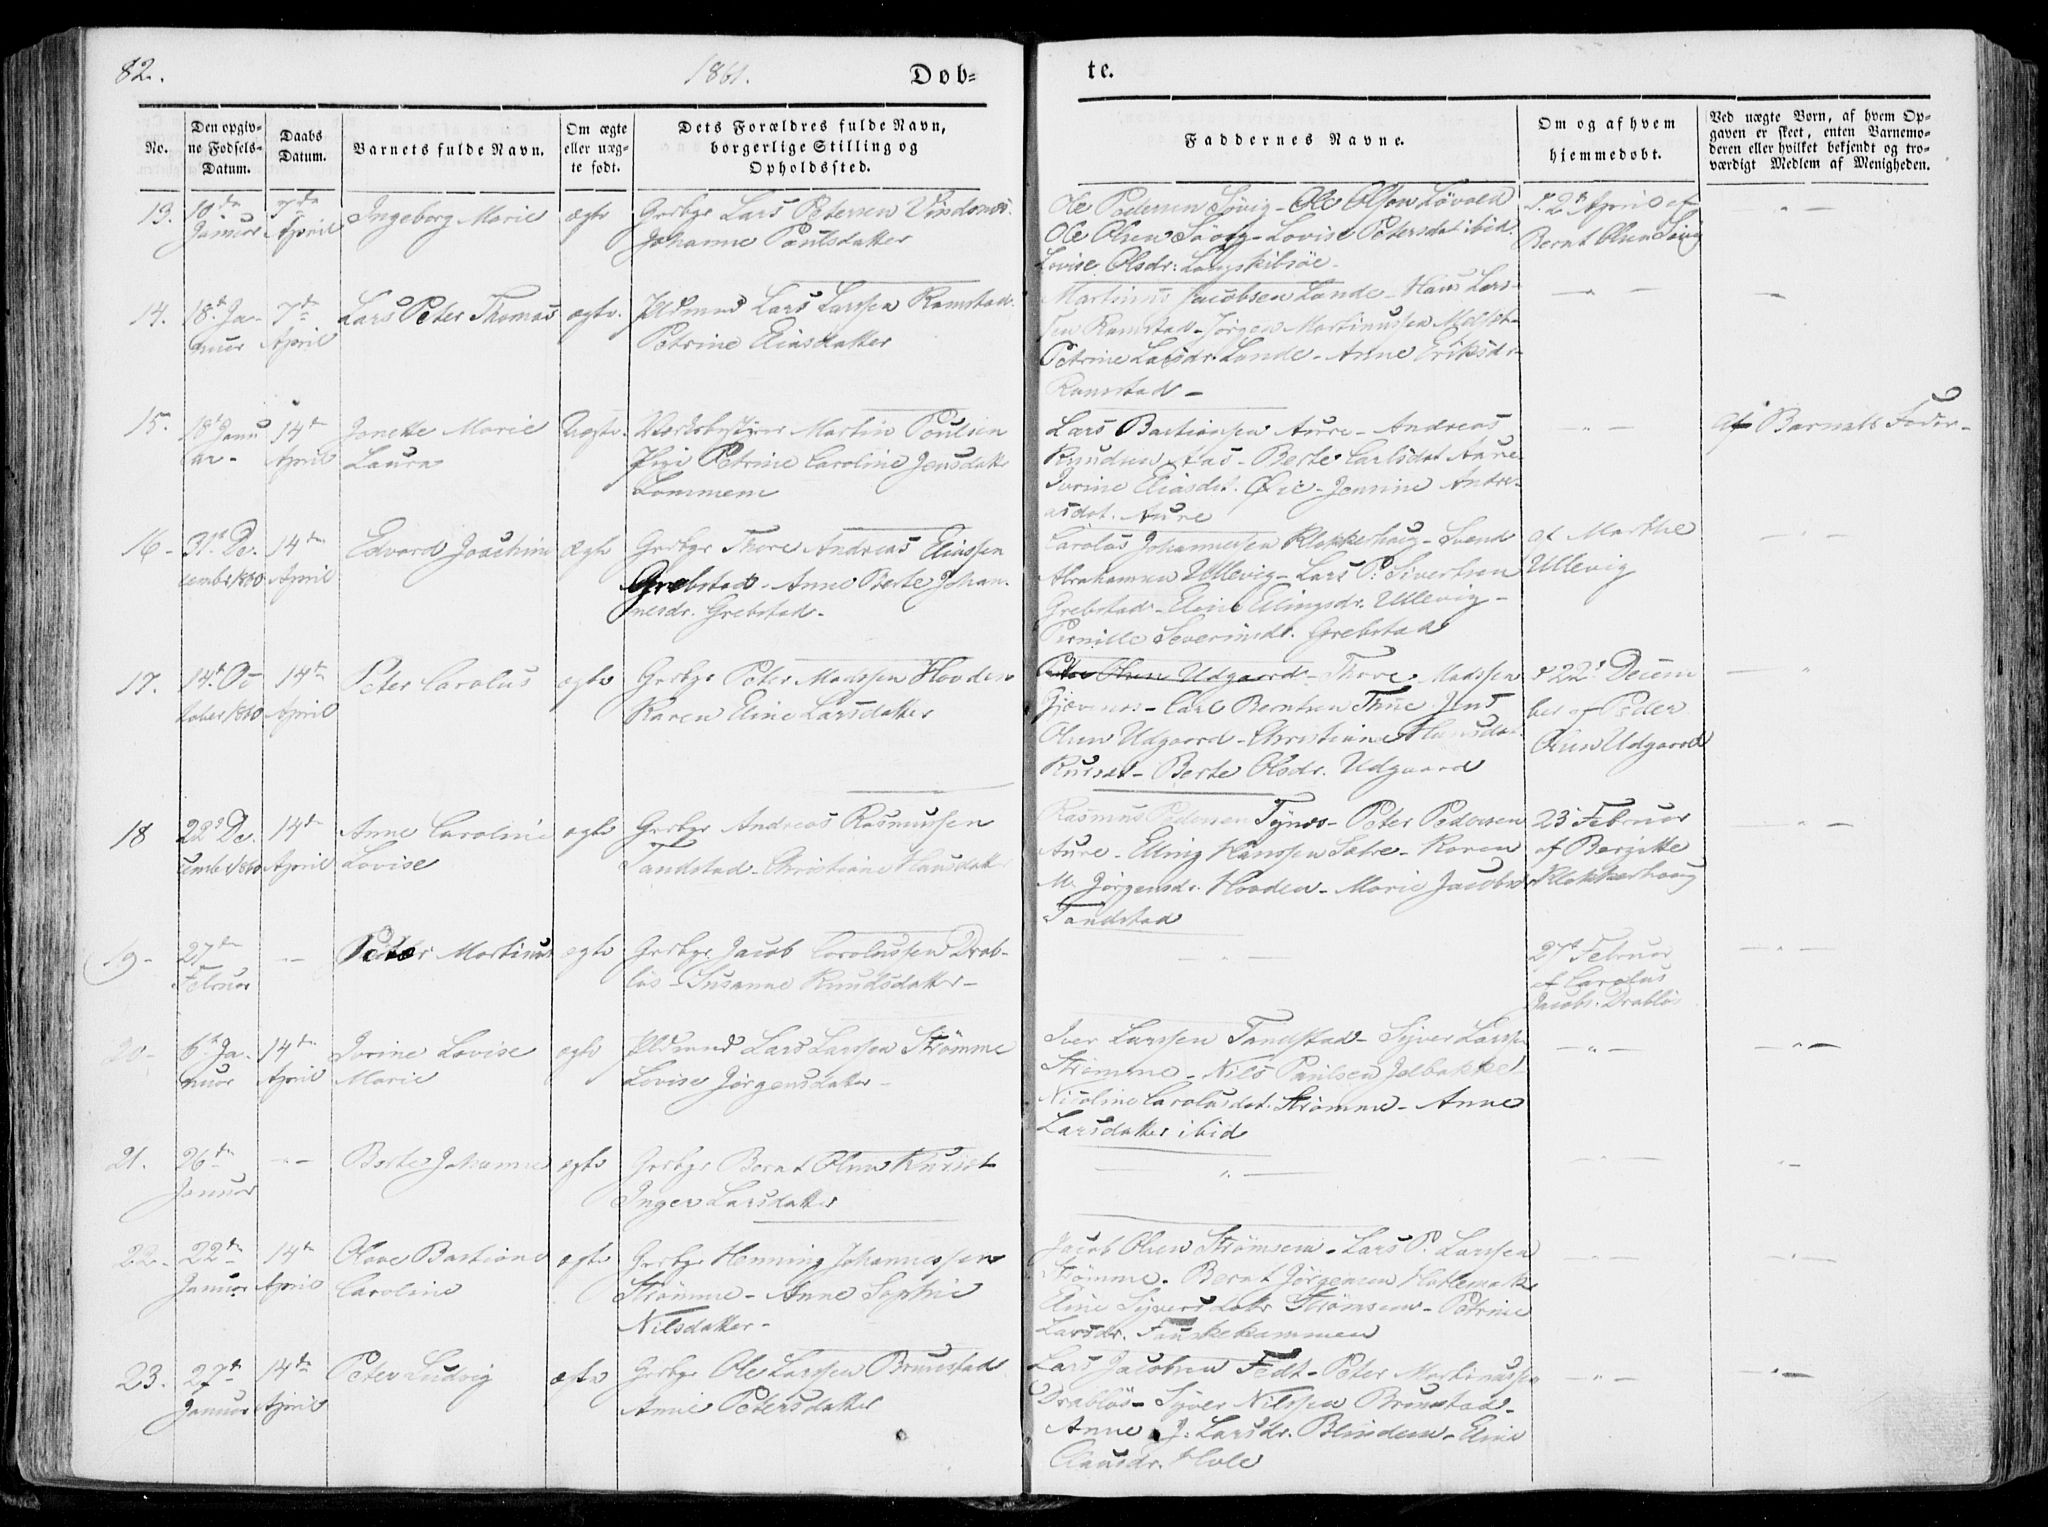 82.
1861.
Døb-
te.
No.
Den opgiv-
ne Fødsels-
Datum.
Daabs
Datum.
Barnets fulde Navn.
Om ægte
eller uæg-
te født.
Dets Forældres fulde Navn,
borgerlige Stilling og
Opholdssted.
Faddernes Navne.
Om og af hvem
hjemmedøbt.
Ved uægte Børn, af hvem Op-
gaven er skeet, enten Barnemo-
deren eller hvilket bekjendt og tro-
værdigt Medlem af Menigheden.
13.
10de
Januar
7de
April
Ingeborg Marie
ægte
Grbgr Lars Petersen Vindsnes.
Johanne Paulsdatter
Ole Pedersen Søvig - Ole Olsen Løvold
Ole Olsen Søvig - Lovise Petersdat ibid.
Lovise Olsdr: Langskibsøe.
d. 2d April af
Bernt Olsen Søvig
14.
18d Ja-
nuar
7de
April
Lars Peter Thomas
ægte.
Pldsmd Lars Larssen Ramstad.
Petrine Eliasdatter
Martinus Jacobsen Lande - Hans Lars-
sen Ramstad - Jørgen Martinussen Melset -
Petrine Larsdr. Lande - Anne Eriksdr
Ramstad -
15.
18d Janu
ar -
14de
April
Janette Marie
Laura
Uægte.
Værksbestyrer Martin Poulsen
Pige Petrine Caroline Jensdatter
Lommem
Lars Bastiansen Aure - Andreas
Knudsen Aas - Berte Carlsdat Aure
Ivrine Eliasdt. Øie - Jensine Andre-
asdat. Aure
Af Barnets Fader -
16 -
31t De-
cember 1860
14de
April
Edvard Joachim
Ægte
Grbgr Thore Andreas Eliassen
Grebstad - Anne Berte Johan-
nesdr. Grebstad -
Carolus Johannessen Klokkerhoug - Svend
Abrahamsen Ullevig - Lars P. Sivertsen
Grebstad - Eline Ellingsdr. Ullevig -
Pernille Severinsdr. Grebstad
af Marthe
Ullevig
17.
14d Oc-
tober 1860
14de
April
Peter Carolus
ægte
Grbgr Peter Madssen Hovden
Karen Eline Larsdatter
Olsen Udgaard - Thore Madssen
Gjævenes - Carl Berntsen Thue Jens
Olsen Udgaard - Christiane Hansdr
Kurset - Berte Olsdr. Udgaard
d 22d Decem
ber af Peder
Olsen Udgaard
18
22d De-
cember 1860
14de
April
Anne Caroline
Lovise
ægte
Grbgr Andreas Rasmussen
Tandstad - Christiane Hansdatter
Rasmus Pedersen Tynes - Peter Pedersen
Aure - Elling Hanssen Satre - Karen
M. Jørgensdr. Hovden - Marie Jacobsdr
Tandstad
23 Februar
af Bergitte
Klokkerhoug
19 -
27de
Februar
Petter Martinus
ægte
Grbgr Jacob Carolussen Drab-
løs - Susanne Knudsdatter -
27d Februar
af Carolus
Jacobs. Drabløs
20 -
6d Ja-
nuar
14de
April
Ivrine Lovise
Marie
ægte
Pldsmd Lars Larssen Strømme
Lovise Jørgensdatter -
Iver Larssen Tandstad - Syver Larssen
Strømme - Nils Paulsen Jelbakke
Nicoline Carolusdat. Strømme - Anne
Larsdatter ibid
21.
26de
Januar
Berte Johanne
ægte
Grbgr Bernt Olsen Kurset
Inger Larsdatter
22 -
22de
Januar
14de
April
Olave Bastiane
Caroline
ægte
Grbgr Henning Johannessen
Strømme - Anne Sophie
Nilsdatter -
Jacob Olsen Strømsem - Lars P. Larssen
Strømme. Bernt Jørgensen Hatlemark
Eline Syversdatter Strømsem - Petrine
Larsdr. Fauskekammen
23.
27de
Januar
14de
April
Peter Ludvig
ægte
Grbgr Ole Larssen Brunstad
Anne Petersdatter
Lars Jacobsen Fedt - Peter Martinussen
Drabløs - Syver Nilssen Brunstad -
Anne J: Larsdr. Blindem - Eline
Clausdr. Hole